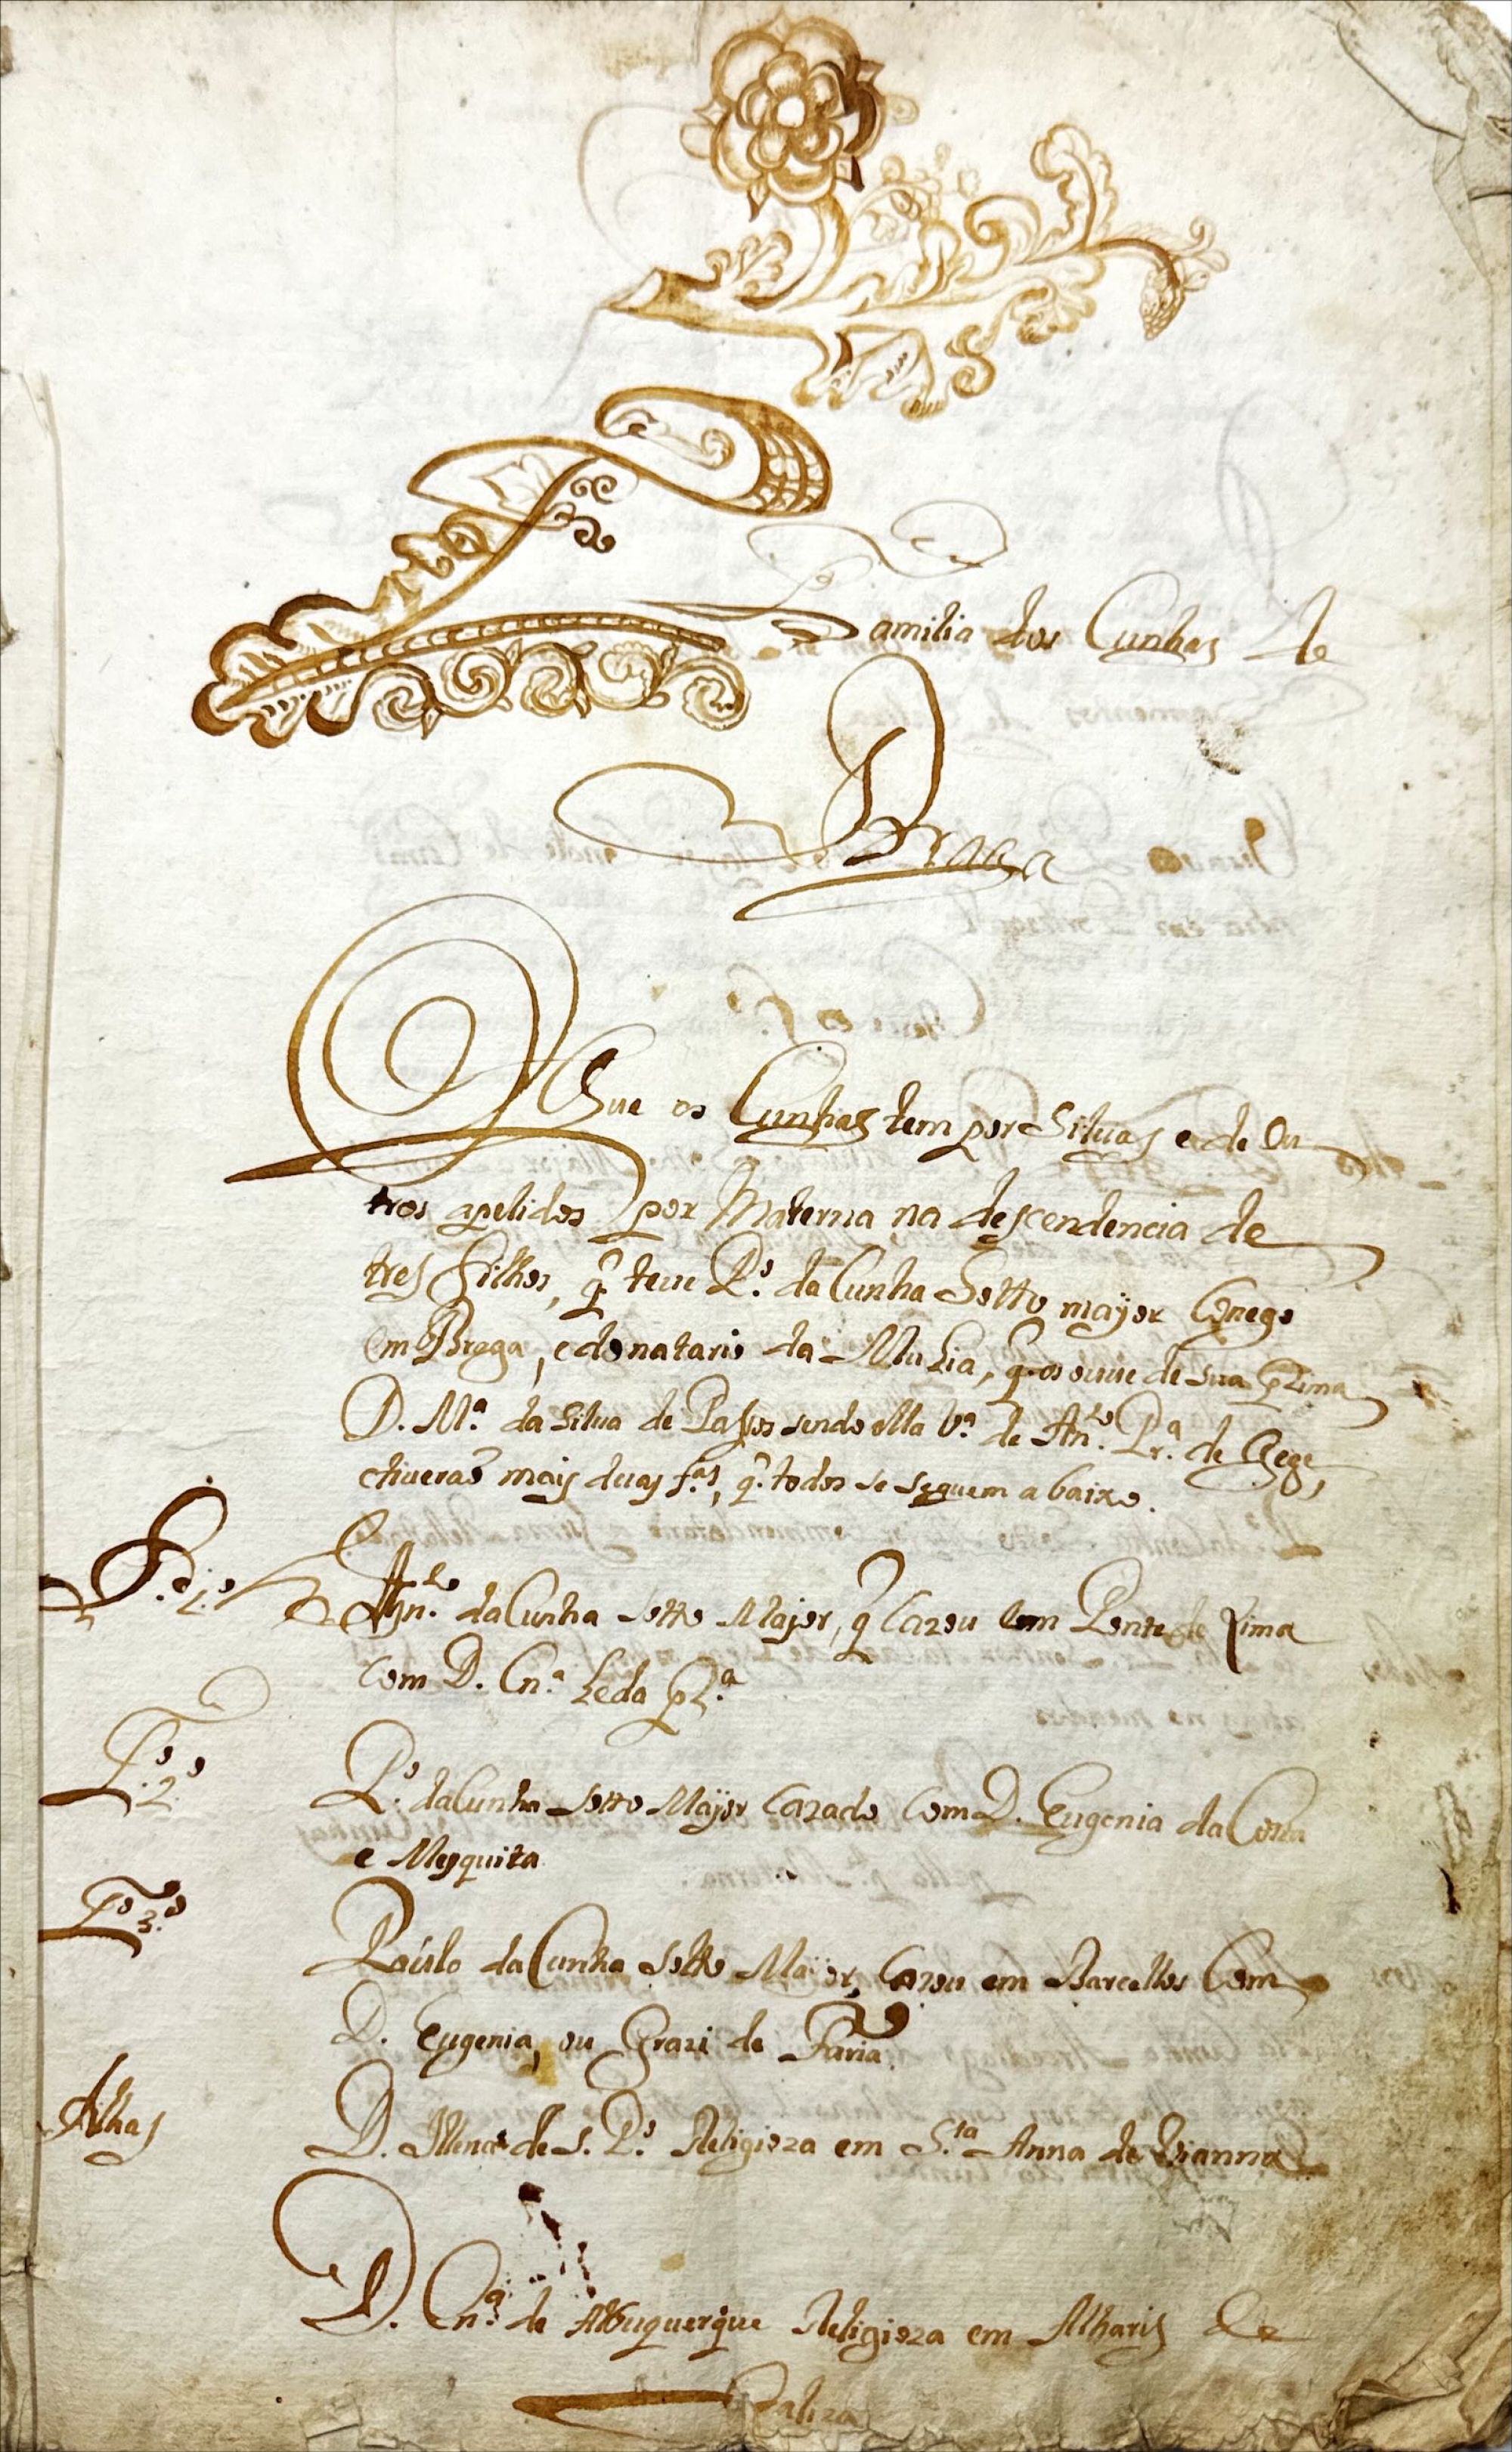 Familia dos Cunhas de
Braga
Que os Cunhas tem por Siluas e de Ou
tros apelidos por Materna na descendencia de
tres Filhos, q̃ teue P.º da Cunha Sotto mayor Conego
em Braga, e donatario da Muhia, q̃ os ouue de sua prima
D. M.ª da Silua de Passos sendo ella V.ª de An.to Pr.ª de
e tiueraõ mais duas f.as, q̃ todos se seguem a baixo.
F.º 1.º
An.to da Cunha Sotto Mayor, q̃ Cazou em Ponte de Lima
Com D. Cn.ª
F.º 2.º
P.º da Cunha Sotto Mayor Cazado Com D. Eugenia da Costa
e Mesquita
F.º 3.º
Paulo da Cunha Sotto Mayor, Cazou em Barcellos Com
D. Eugenia, ou Grazi de Faria
Filhas
D. de S. P.º Religioza em S.ta Anna de Vianna
D. Cn.ª de Albuquerque Religioza em Alharis de
Galiza